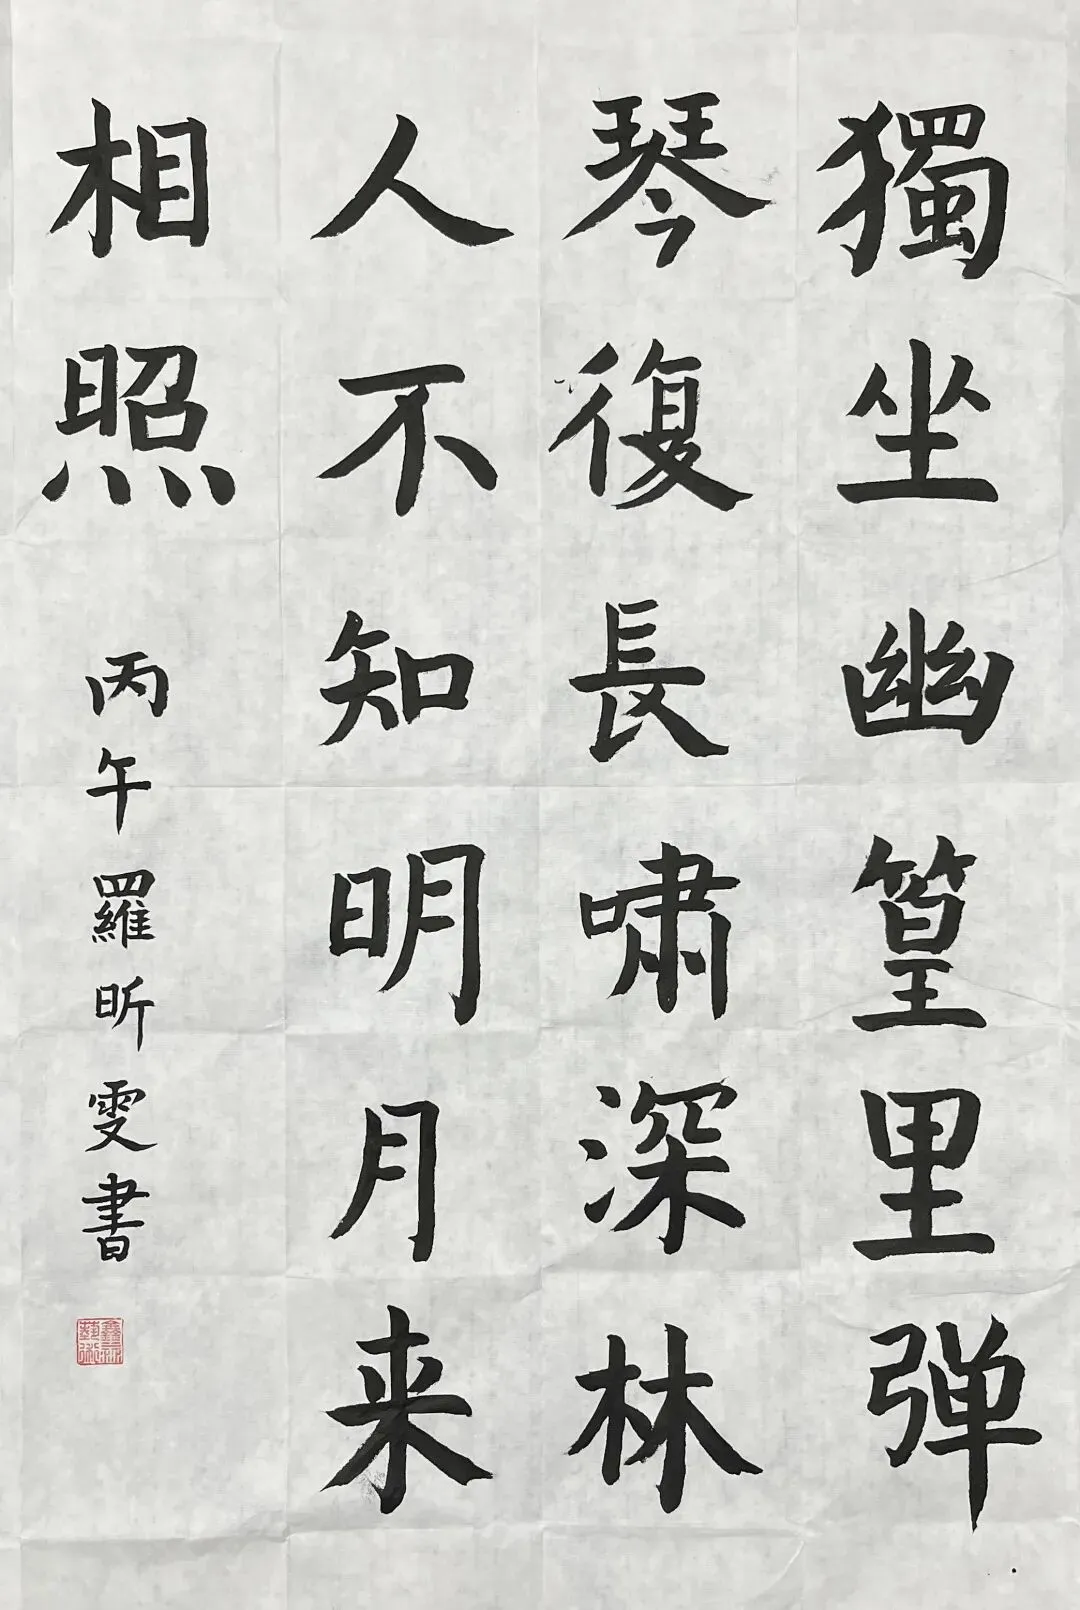 獨坐幽篁里弹
琴復長啸深林
人不知明月来
相照
丙午羅昕雯書